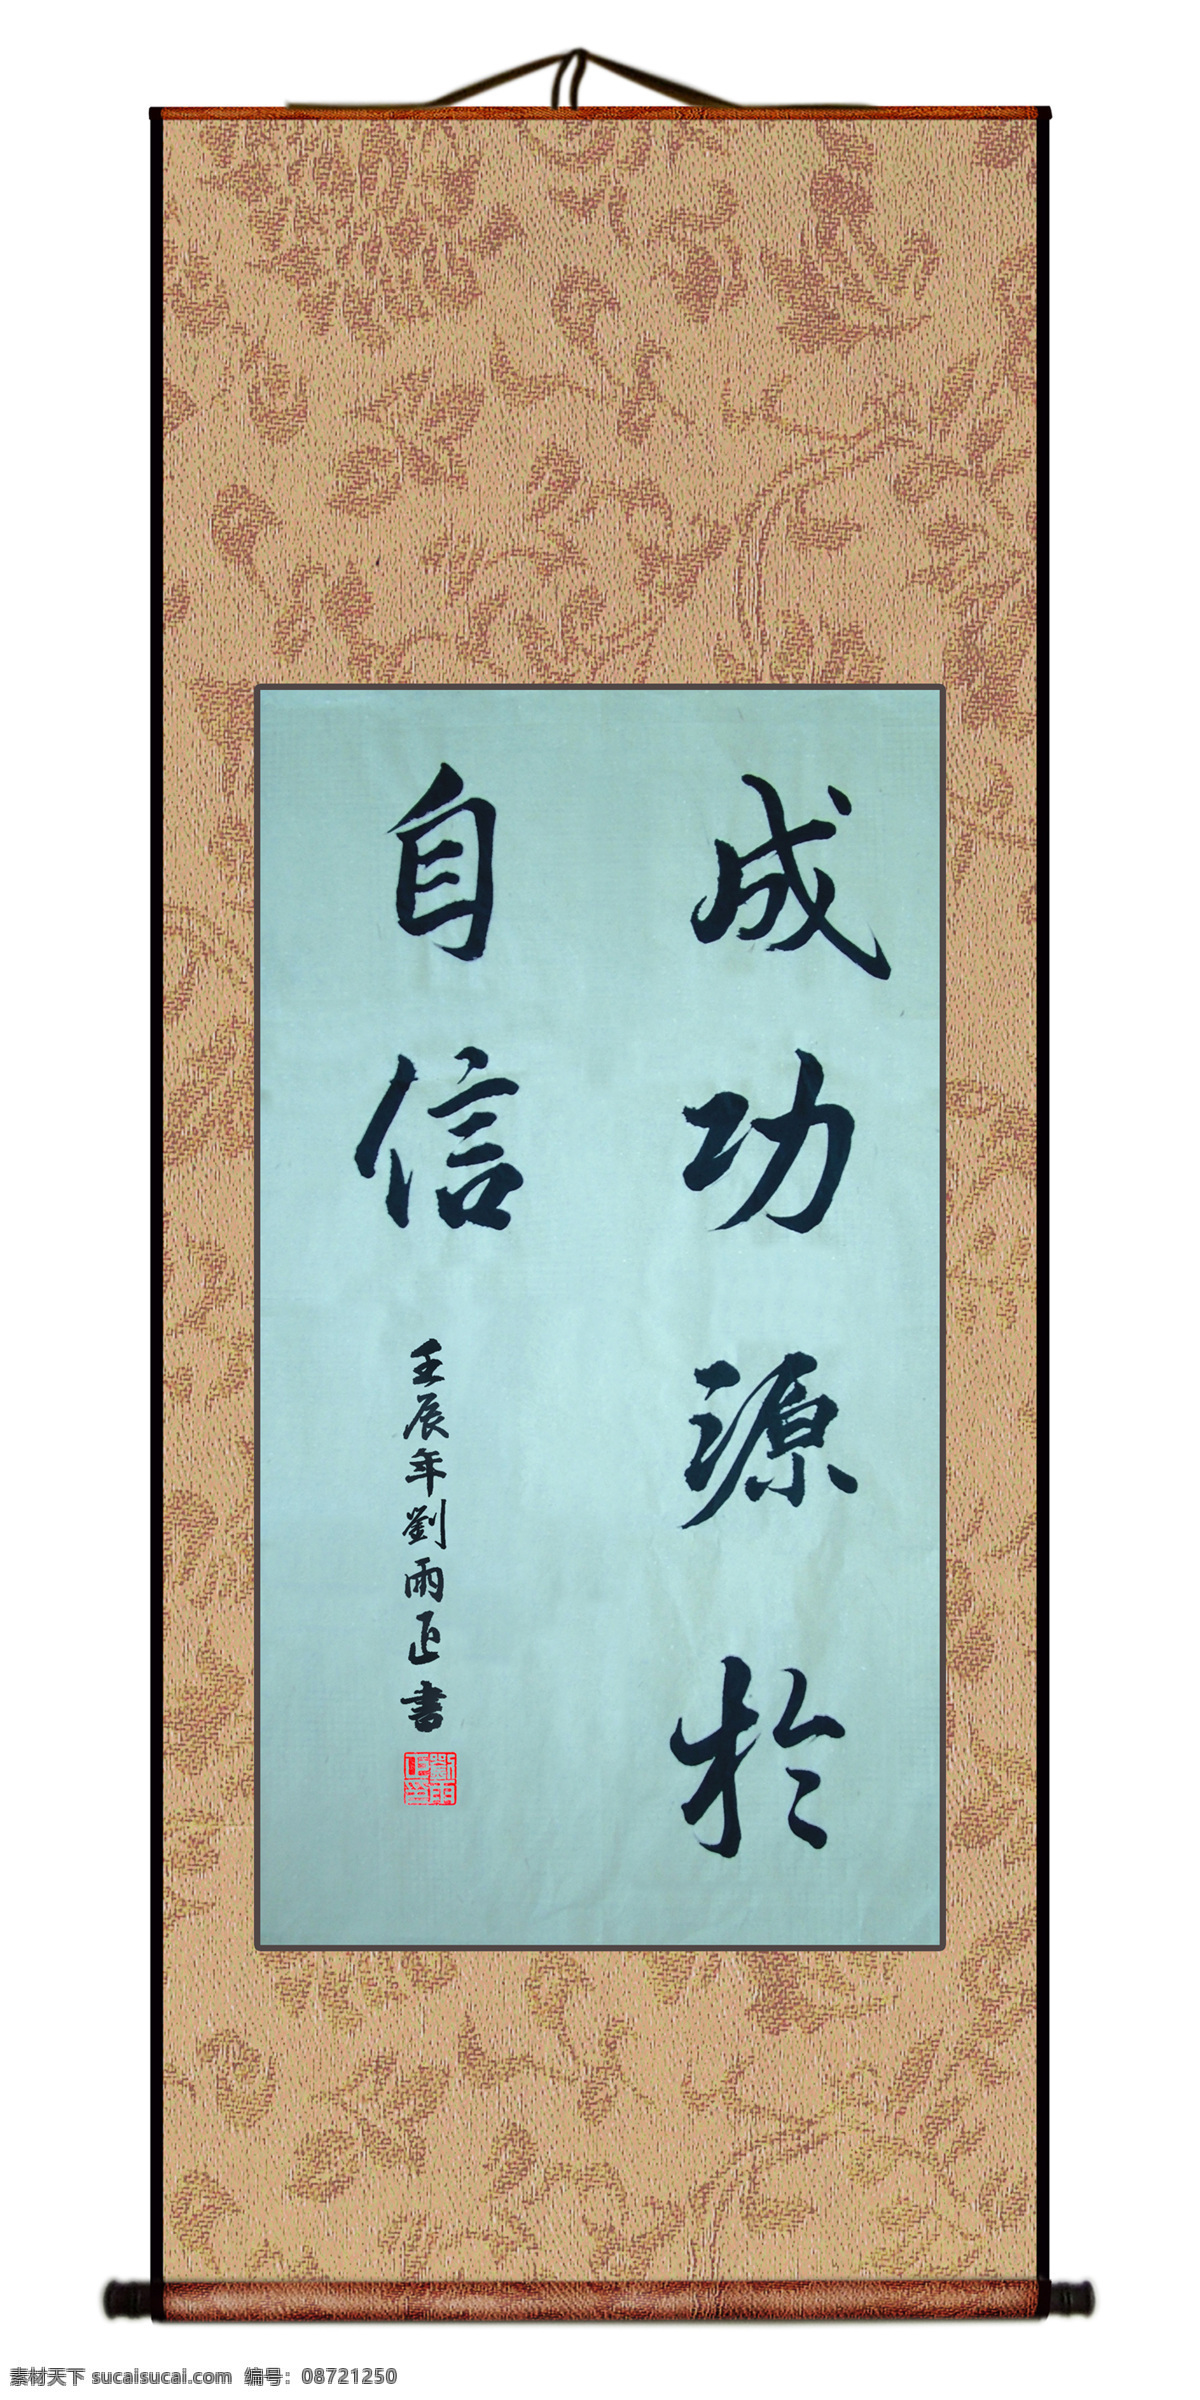 成功源於
自信
壬辰年劉雨正書
素材天下 sucaisucai.com 编号：08721250